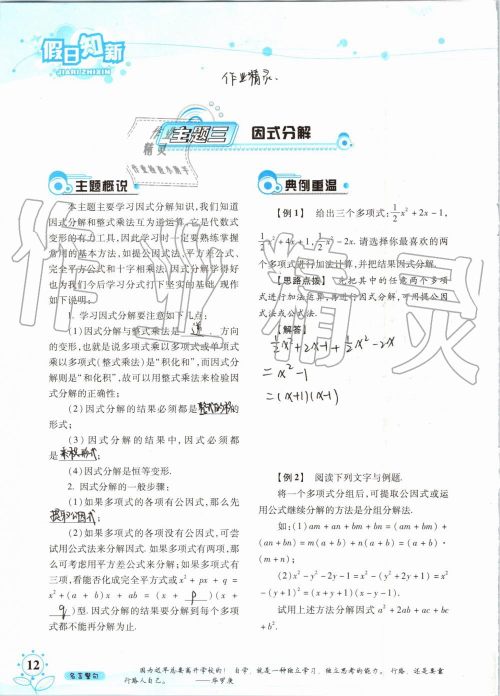 假日知新
JIARI ZHIXIN
作业精灵
主题三 因式分解
主题概说
本主题主要学习因式分解知识,我们知道
因式分解和整式乘法互为逆运算,它是代数式
变形的有力工具,因此学习时一定要熟练掌握
常用的基本方法,如提公因式法、平方差公式、
完全平方公式和十字相乘法.因式分解学得好
也为我们今后学习分式打下坚实的基础.现作
如下说明:
1. 学习因式分解要注意如下几点:
(1)因式分解与整式乘法是 逆 方向
的变形,也就是说多项式乘以多项式或单项式
乘以多项式(整式乘法)是“积化和”,而因式分
解则是“和化积”,故可以用整式乘法来检验因
式分解的正确性;
(2)因式分解的结果必须都是整式的积的
形式;
(3)因式分解的结果中,因式必须都
是乘积形式;
(4)因式分解是恒等变形.
2. 因式分解的一般步骤:
(1)如果多项式的各项有公因式,那么先
提取公因式;
(2)如果多项式的各项没有公因式,可尝
试用公式法来分解因式.如果多项式有两项,那
么可考虑用平方差公式来分解;如果多项式有
三项,看能否化成完全平方式或x²+px+q=
x²+(a+b)x+ab=(x+ p )(x+
q )型.因式分解的结果要分解到每个多项
式都不能再分解为止.
典例重温
【例1】 给出三个多项式:1/2x²+2x-1,
1/2x²+4x+1,1/2x²-2x.请选择你最喜欢的两
个多项式进行加法计算,并把结果因式分解.
【思路点拨】 先把其中的任意两个多项
式进行加法运算,再进行因式分解,可用提公因
式法或公式法.
【解答】
1/2x²+2x-1+1/2x²-2x
=x²-1
=(x+1)(x-1)
【例2】 阅读下列文字与例题.
将一个多项式分组后,可提取公因式或运
用公式继续分解的方法是分组分解法.
如:(1)am+an+bm+bn=(am+bm)+
(an+bn)=m(a+b)+n(a+b)=(a+b)·
(m+n);
(2)x²-y²-2y-1=x²-(y²+2y+1)=x²
-(y+1)²=(x+y+1)(x-y-1).
试用上述方法分解因式 a²+2ab+ac+bc
+b².
12
名言警句
因为迟早总要离开学校的!自学,就是一种独立学习,独立思考的能力。行路,还是要靠
行路人自己。 ——华罗庚